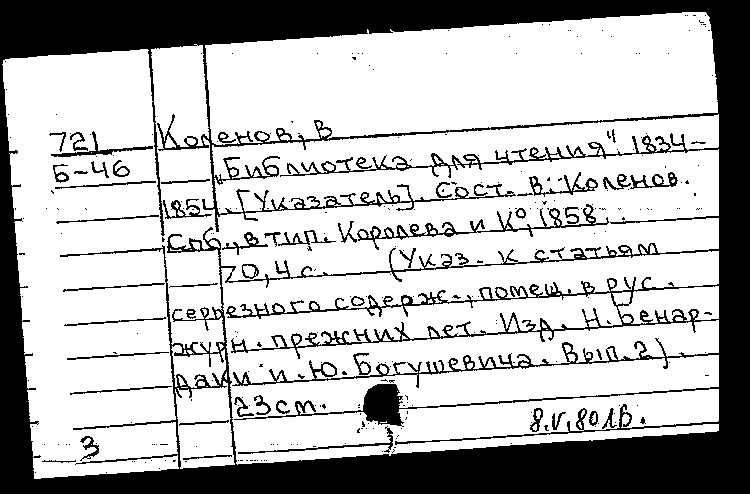 721 Коленов, В
Б-46 „Библиотека для чтения" 1834-
1854. [Указатель]. Сост. В. Коленов.
Спб., в тип. Королева и К°, 1858.
70, 4 с. (Указ. к статьям
серьезного содерж., помещ. в рус.
журн. прежних лет. Изд. Н. Бенар-
даки и Ю. Богушевича. Вып. 2).
23 см.
3 8.V.80 ЛВ.